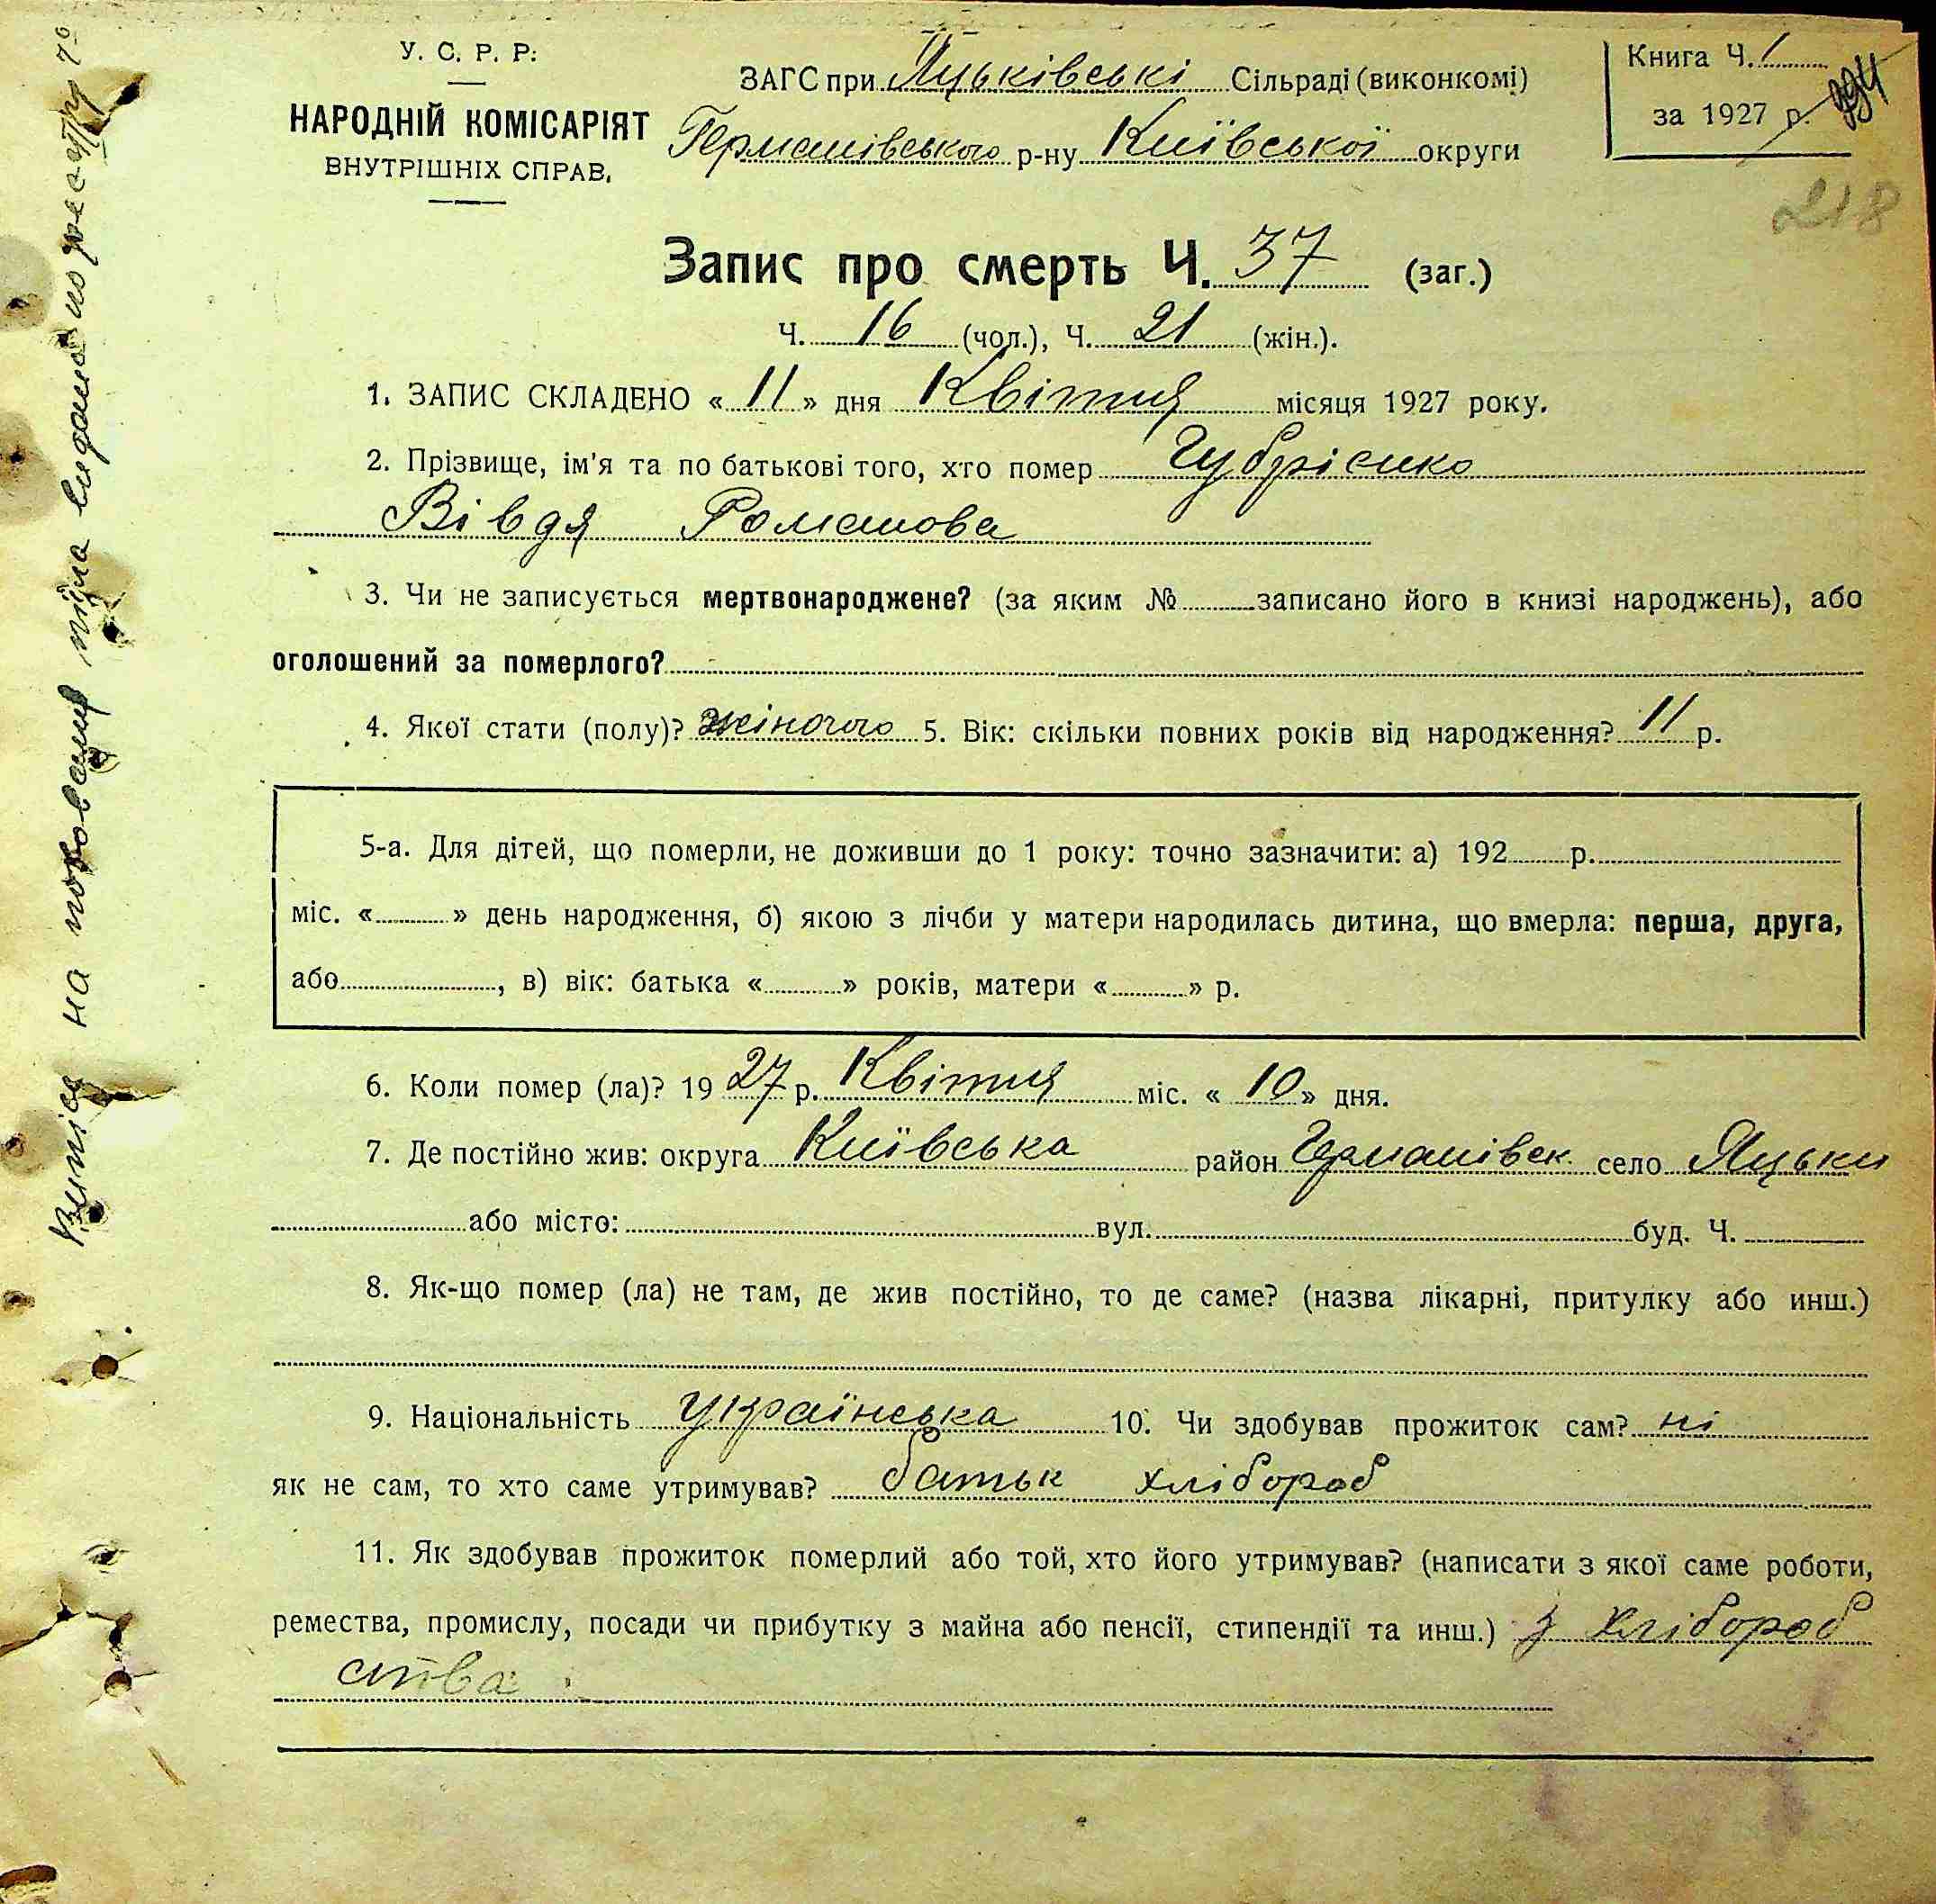 У. С. Р. Р.
НАРОДНІЙ КОМІСАРІЯТ
ВНУТРІШНІХ СПРАВ.
ЗАГС при Яцьківські Сільраді (виконкомі)
Германівського р-ну Київської округи
Книга Ч. 1
за 1927 р.
218
Запис про смерть Ч. 37 (заг.)
Ч. 16 (чол.), Ч. 21 (жін.).
1. ЗАПИС СКЛАДЕНО « 11 » дня Квітня місяця 1927 року.
2. Прізвище, ім'я та по батькові того, хто помер
Вівдя Романова
3. Чи не записується мертвонароджене? (за яким № записано його в книзі народжень), або
оголошений за померлого?
4. Якої стати (полу)? жіночого 5. Вік: скільки повних років від народження? 11 р.
5-а. Для дітей, що померли, не доживши до 1 року: точно зазначити: а) 192 р.
міс. « » день народження, б) якою з лічби у матери народилась дитина, що вмерла: перша, друга,
або , в) вік: батька « » років, матери « » р.
6. Коли помер (ла)? 19 27 р. Квітня міс. « 10 » дня.
7. Де постійно жив: округа Київська район Германівск село Яцьки
або місто: вул. буд. Ч.
8. Як-що помер (ла) не там, де жив постійно, то де саме? (назва лікарні, притулку або инш.)
9. Національність українська 10. Чи здобував прожиток сам? ні
як не сам, то хто саме утримував? батьк хлібороб
11. Як здобував прожиток померлий або той, хто його утримував? (написати з якої саме роботи,
ремества, промислу, посади чи прибутку з майна або пенсії, стипендії та инш.) з хлібороб
ства
на поховання тіла видано